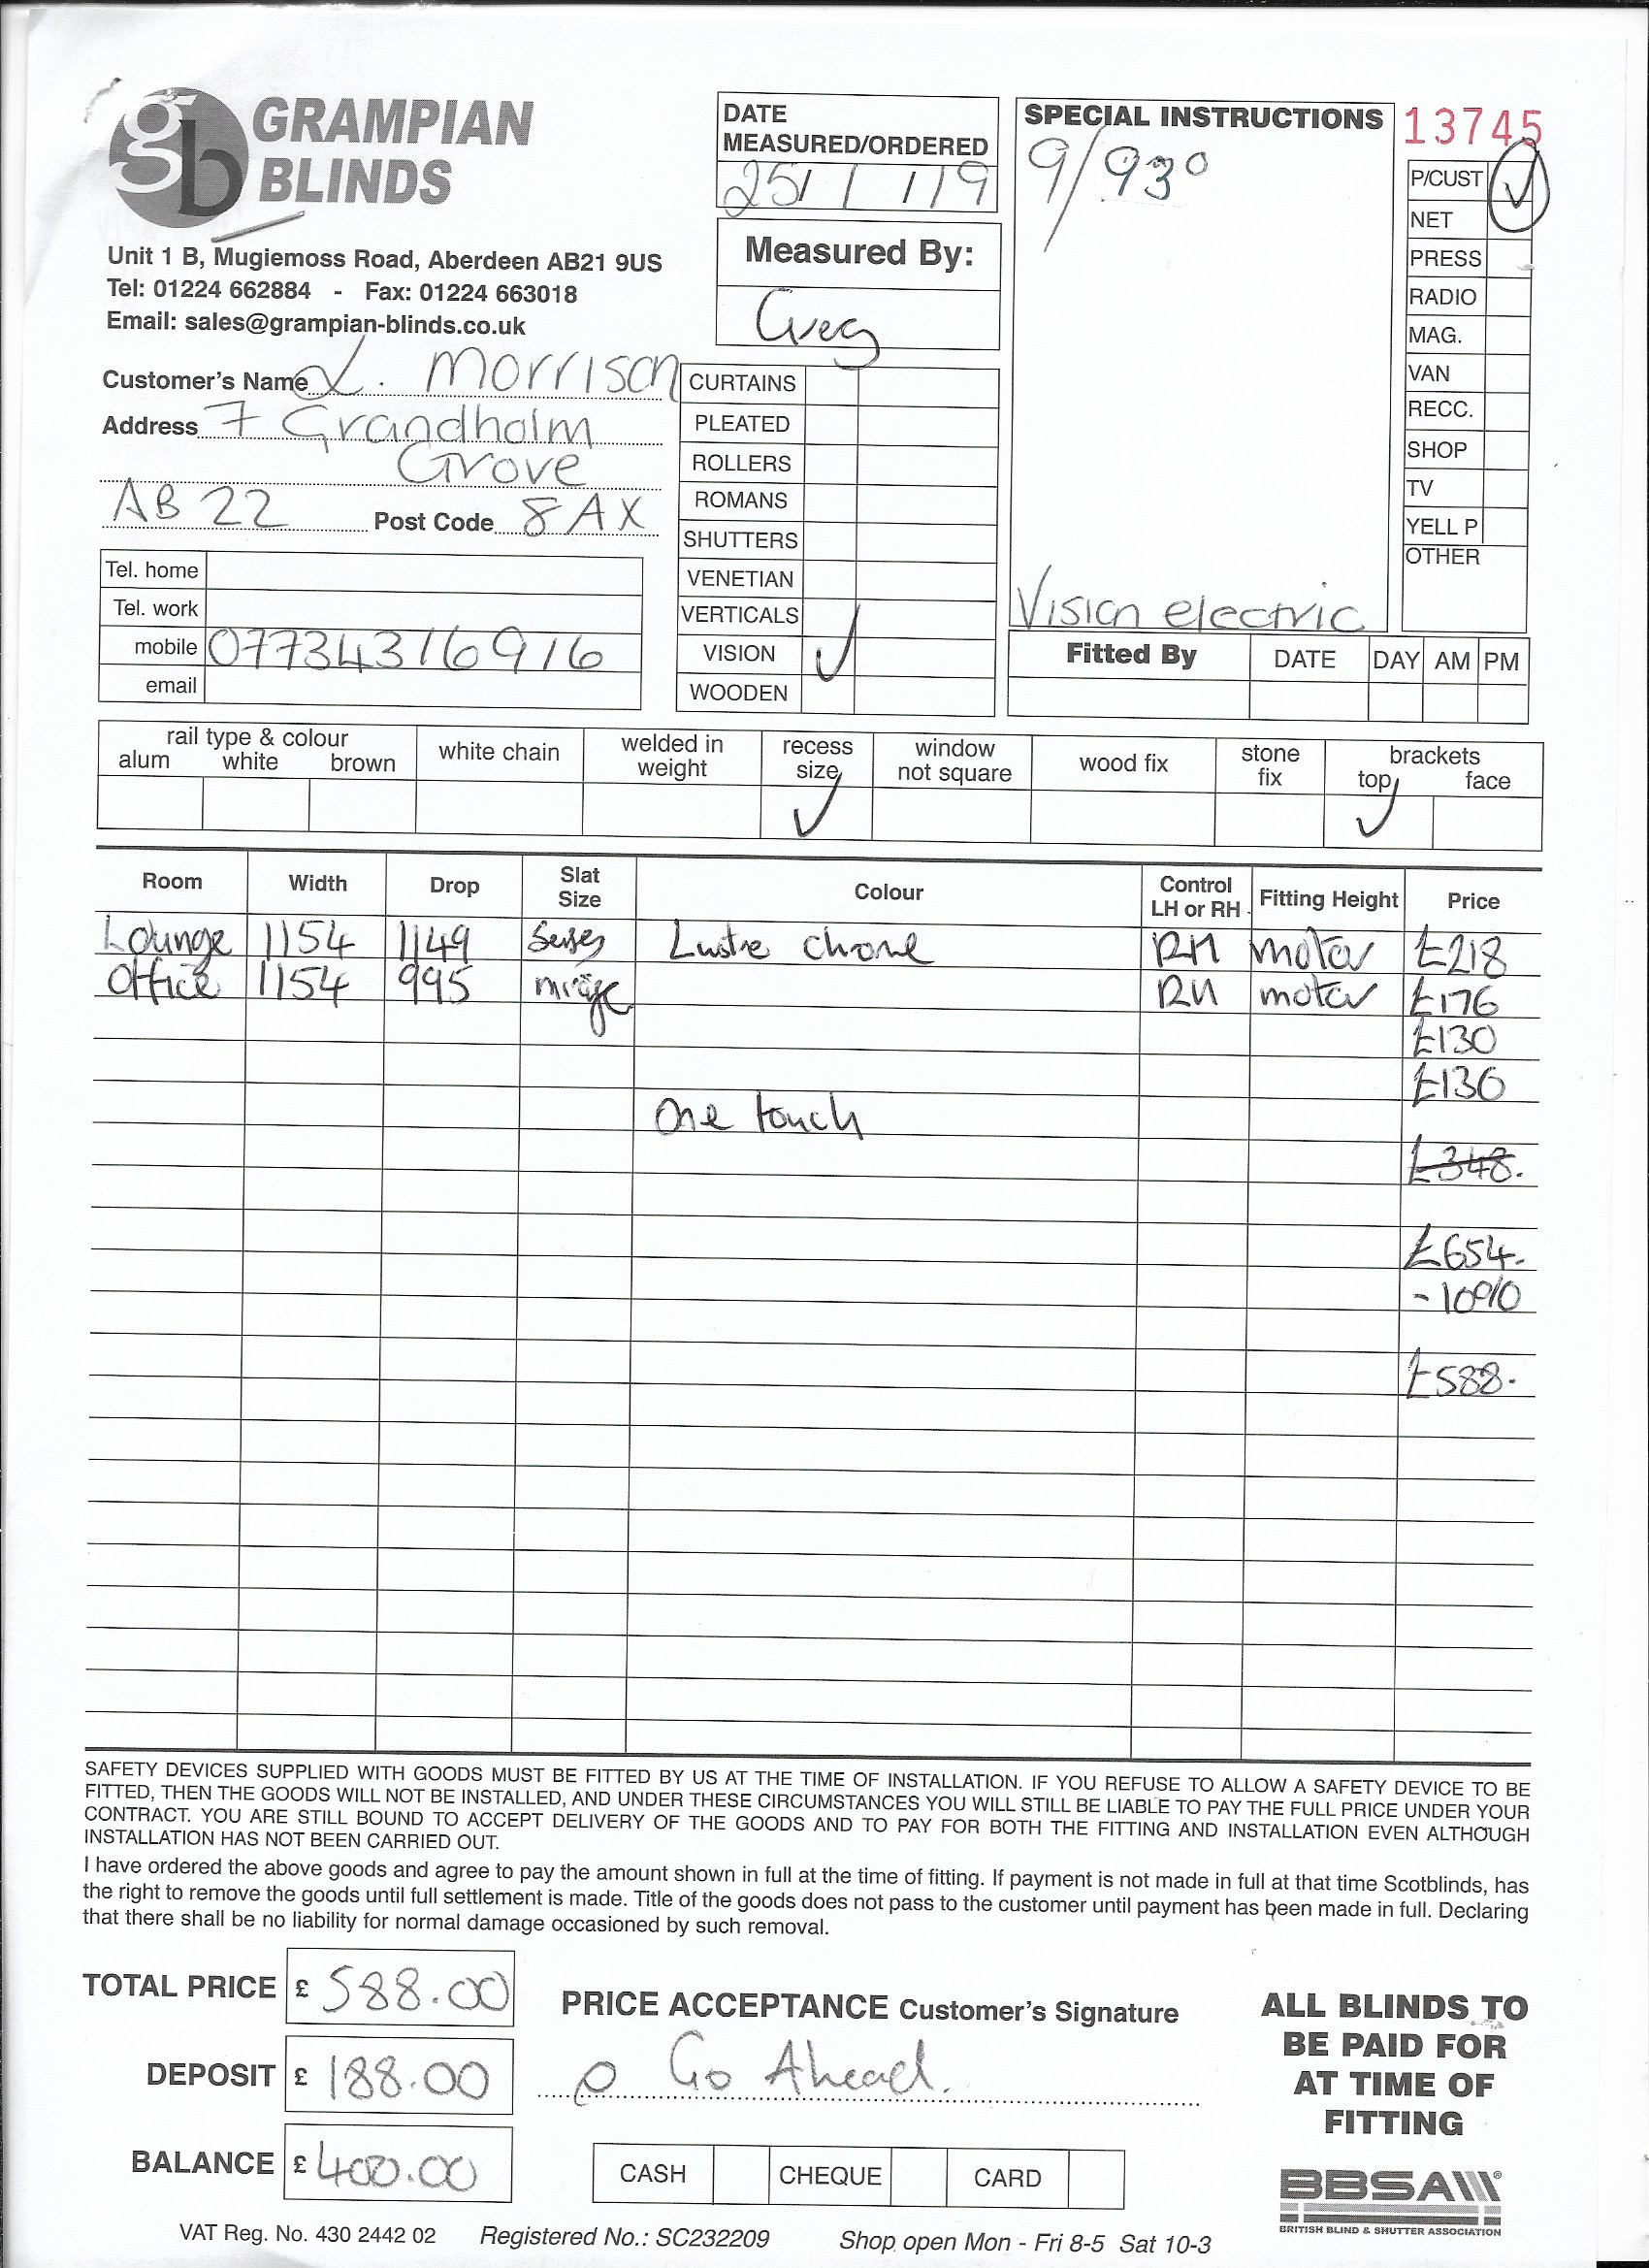 gb GRAMPIAN BLINDS
Unit 1 B, Mugiemoss Road, Aberdeen AB21 9US
Tel: 01224 662884 - Fax: 01224 663018
Email: sales@grampian-blinds.co.uk
Customer's Name L. Morrison
Address 7 Grandholm
Grove
AB 22 Post Code 8AX
Tel. home
Tel. work
mobile 07734316916
email
DATE
MEASURED/ORDERED
25/1/19
Measured By:
Greg
CURTAINS
PLEATED
ROLLERS
ROMANS
SHUTTERS
VENETIAN
VERTICALS
VISION ✓
WOODEN
SPECIAL INSTRUCTIONS
9/930
Vision electric
13745
P/CUST ✓
NET
PRESS
RADIO
MAG.
VAN
RECC.
SHOP
TV
YELL P
OTHER
Fitted By DATE DAY AM PM
rail type & colour
alum white brown
white chain
welded in weight
recess size ✓
window not square
wood fix
stone fix
brackets
top ✓ face
Room Width Drop Slat Size Colour Control LH or RH Fitting Height Price
Lounge 1154 1149 Senses Lustre chrome RH motor £218
Office 1154 995 mirage RH motor £176
£130
£130
One touch
£348.
£654.
- 10%
£588.
SAFETY DEVICES SUPPLIED WITH GOODS MUST BE FITTED BY US AT THE TIME OF INSTALLATION. IF YOU REFUSE TO ALLOW A SAFETY DEVICE TO BE
FITTED, THEN THE GOODS WILL NOT BE INSTALLED, AND UNDER THESE CIRCUMSTANCES YOU WILL STILL BE LIABLE TO PAY THE FULL PRICE UNDER YOUR
CONTRACT. YOU ARE STILL BOUND TO ACCEPT DELIVERY OF THE GOODS AND TO PAY FOR BOTH THE FITTING AND INSTALLATION EVEN ALTHOUGH
INSTALLATION HAS NOT BEEN CARRIED OUT.
I have ordered the above goods and agree to pay the amount shown in full at the time of fitting. If payment is not made in full at that time Scotblinds, has
the right to remove the goods until full settlement is made. Title of the goods does not pass to the customer until payment has been made in full. Declaring
that there shall be no liability for normal damage occasioned by such removal.
TOTAL PRICE £ 588.00
DEPOSIT £ 188.00
BALANCE £ 400.00
PRICE ACCEPTANCE Customer's Signature
Go Ahead.
CASH CHEQUE CARD
ALL BLINDS TO
BE PAID FOR
AT TIME OF
FITTING
BBSA
BRITISH BLIND & SHUTTER ASSOCIATION
VAT Reg. No. 430 2442 02 Registered No.: SC232209 Shop open Mon - Fri 8-5 Sat 10-3